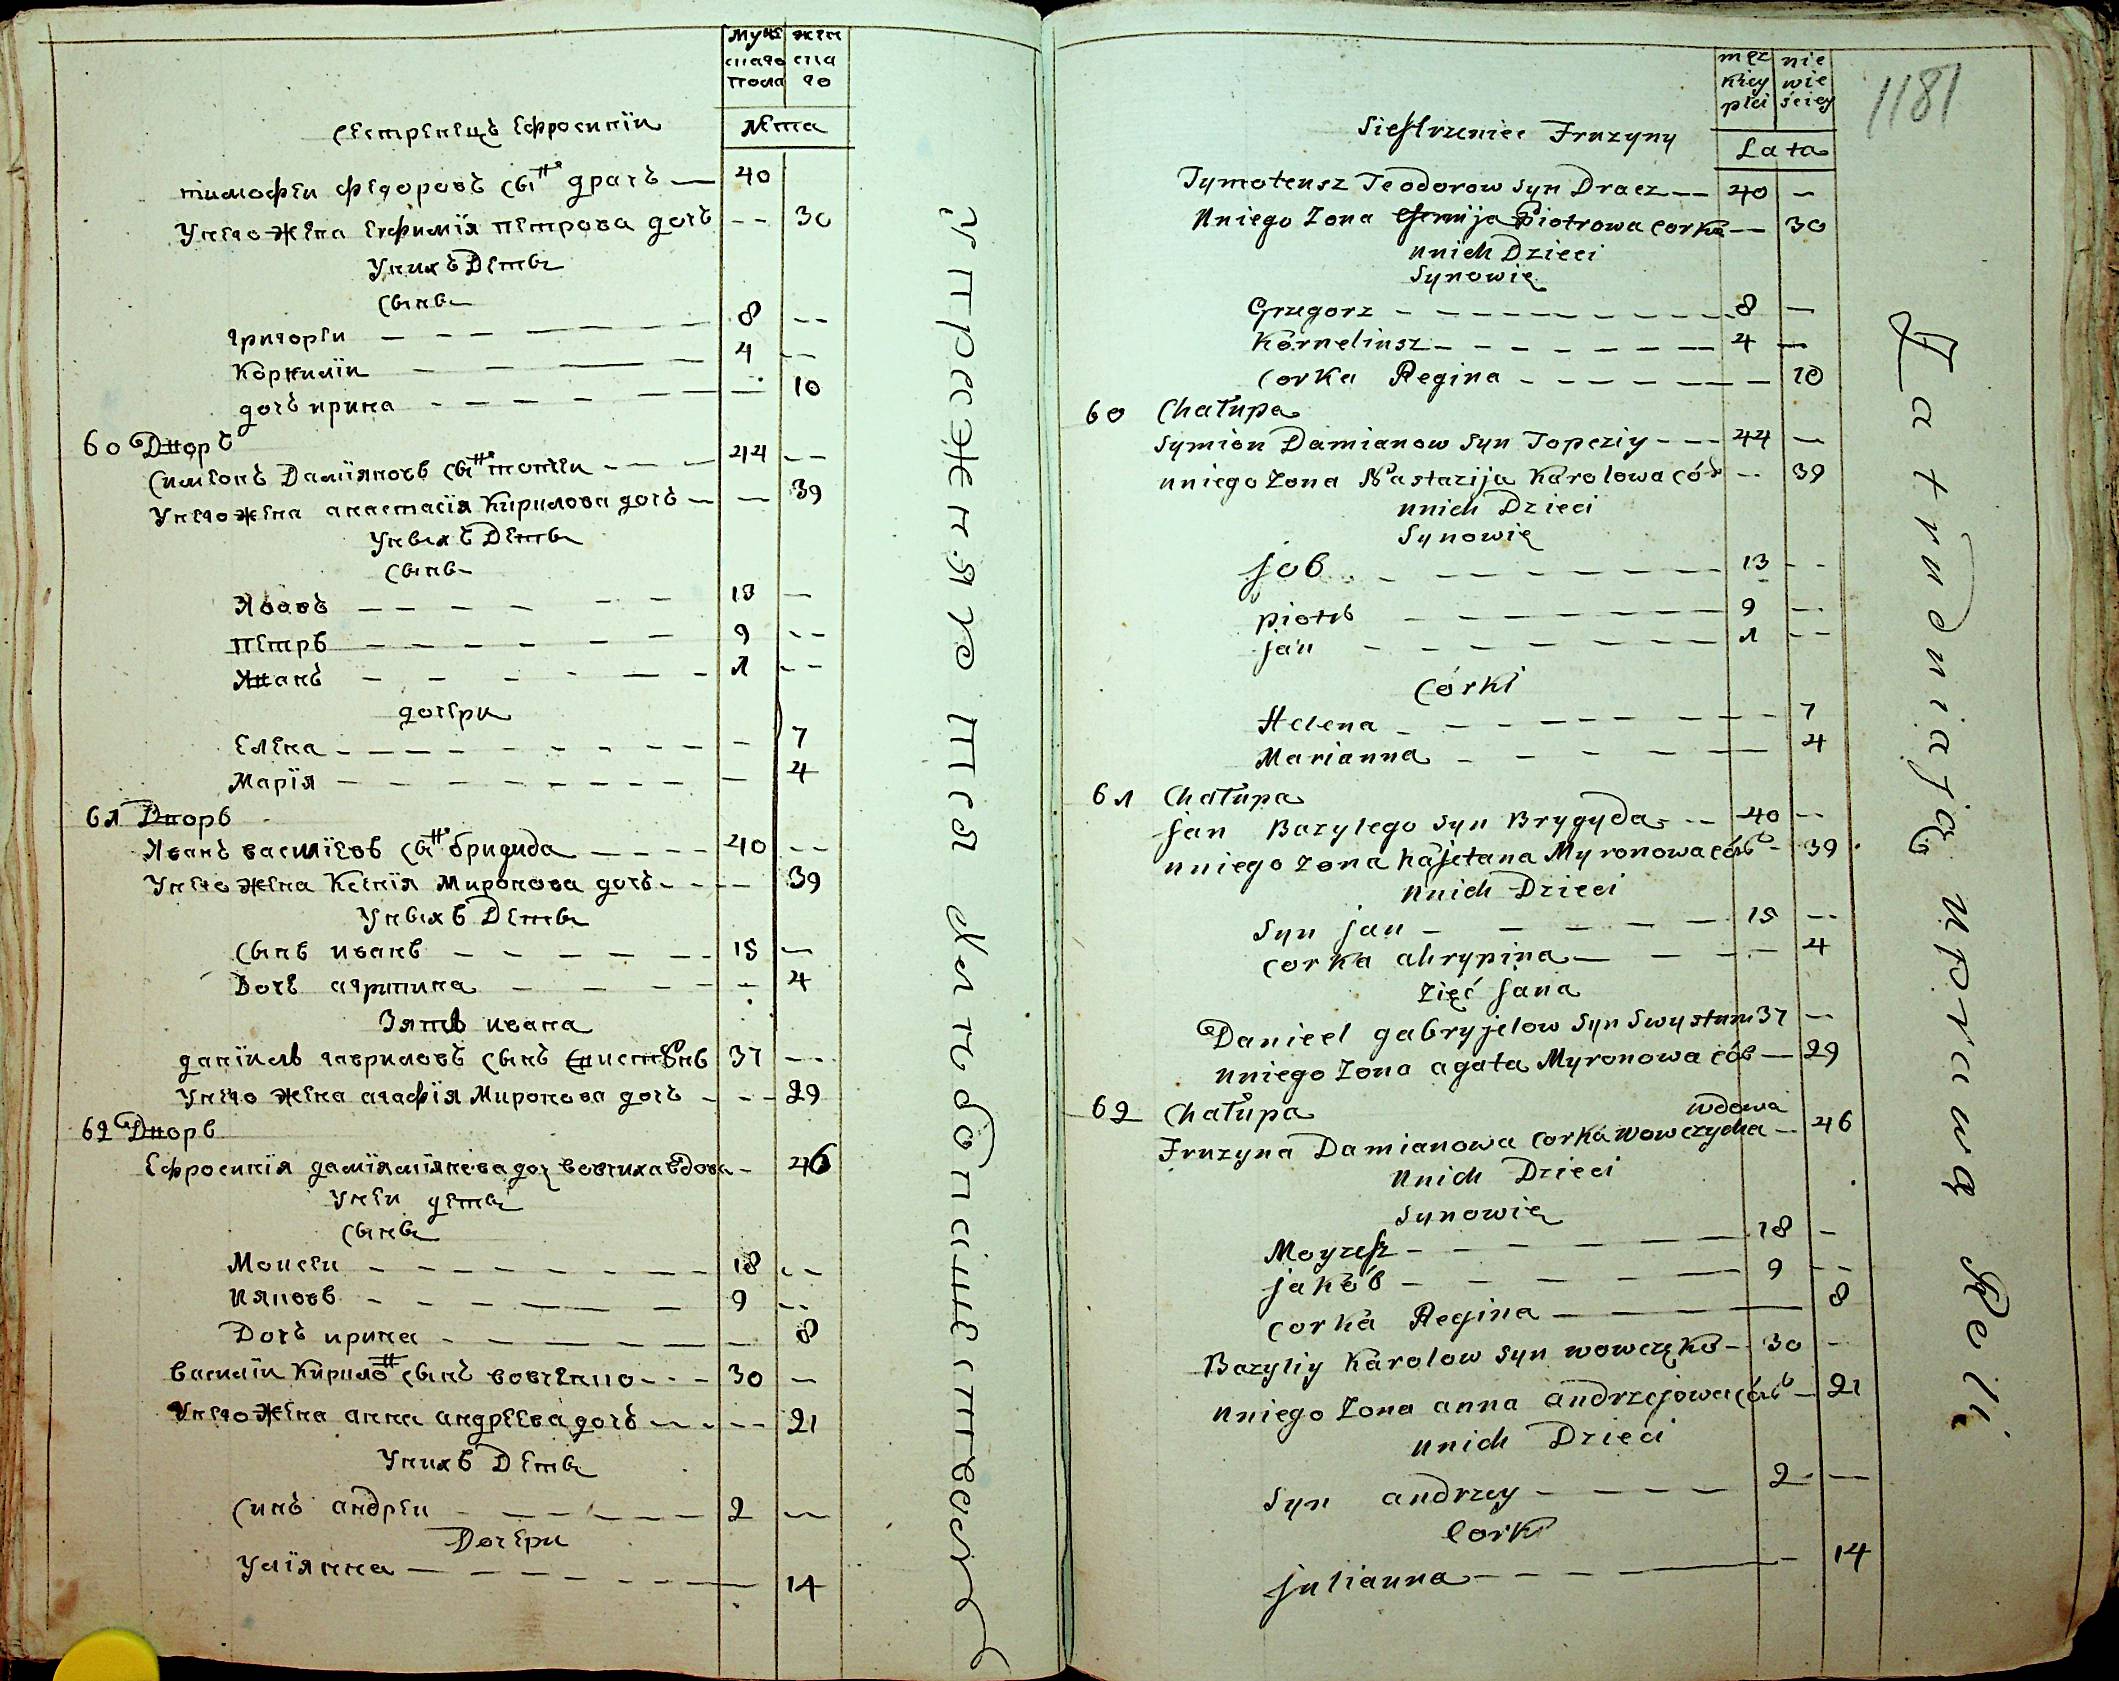 Мужскаго пола
женскаго
Лета
Сестренецъ Ефросинїи
тимофеи федоровъ сынъ драчъ — 40
Унего жена Евфимїя петрова дочъ -- 30
Унихъ Дети
Сыны
григореи — 8 --
Корнилїи — 4 --
дочъ ирина — 10
60 Дворъ
Симеонъ Дамїяновъ сынъ топчеи --- 44 --
Унего жена анастасїя Кирилова дочъ — 39
Уныхъ Дети
Сыны
Иовъ — 13 —
петръ — 9 --
Иванъ — 1 --
дочери
Елена — 7
Марїя — 4
61 Дворъ
Иванъ василїевъ сынъ бригида ---- 40 --
Унего жена Ксенїя Миронова дочъ --- 39
Уныхъ Дети
Сынъ иванъ — 15 —
Дочъ агрипина — 4
Зять ивана
данїилъ гавриловъ сынъ свистунъ 37 --
Унего жена агафїя Миронова дочъ --- 29
62 Дворъ
Ефросинїя дамїянова доч вовчиха вдова — 46
Унеи дети
Сыны
Моисеи — 18 --
Ияковъ — 9 --
Дочъ ирина — 8
василїи Кирило сынъ вовченко --- 30 —
Унего жена анна андреева дочъ --- 21
Унихъ Дети
Синъ андреи — 2 —
Дочери
Улїянна — 14
Упражняются хлебопашествомъ
męzkiey płci
niewieściey
Lata
1181
Siestrzeniec Fruzyny
Tymoteusz Teodorow syn Dracz -- 40 —
Uniego Zona Piotrowa corka -- 30
unich Dzieci
Synowie
Grzegorz — 8 —
Korneliusz — 4 —
Corka Regina — 10
60 Chałupa
Symion Damianow Syn Topcziy --- 44 —
uniego Zona Nastazija Karolowa có -- 39
unich Dzieci
Synowie
job — 13 --
piotr — 9 --
jan — 1 --
Córki
Helena — 7
Marianna — 4
61 Chałupa
jan Bazylego syn Brygyda -- 40 --
uniego zona Kajetana Myronowa — 39
Unich Dzieci
Syn jan — 15 --
corka ahrypina — 4
Zięć jana
Danieel gabryjelow Syn Swystum 37 —
uniego Zona agata Myronowa — 29
62 Chałupa
wdowa
Fruzyna Damianowa corka wowczycha — 46
Unich Dzieci
Synowie
Moyzesz — 18 —
jakób — 9 --
corka Regina — 8
Bazyliy Karolow Syn wowczęko — 30 —
uniego Zona anna andrzejowa — 21
unich Dzieci
Syn andrzey — 2 —
Corki
julianna — 14
Zatrudniają uprawą Roli